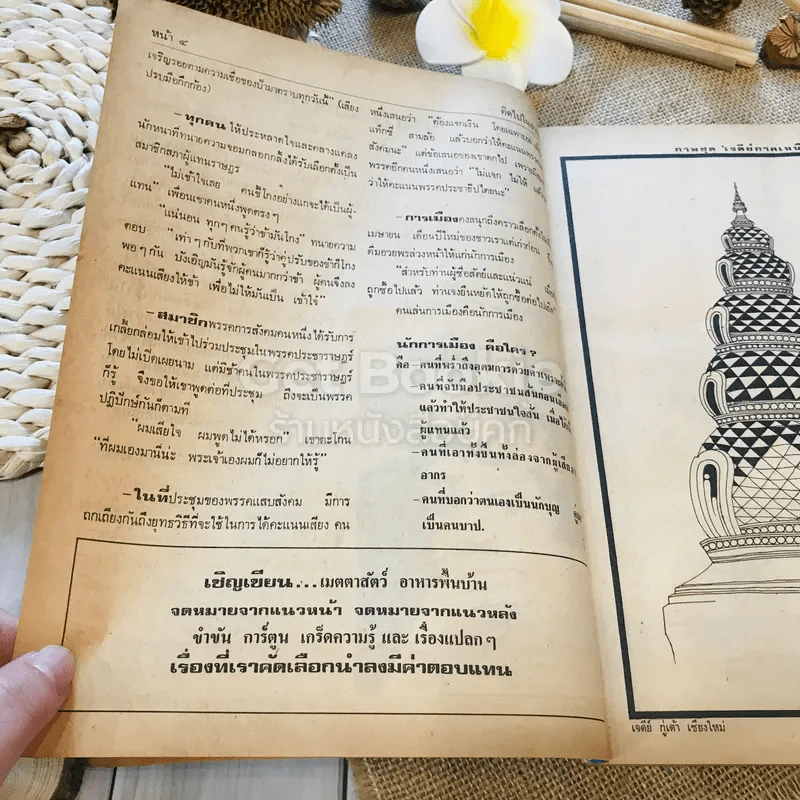 หน้า ๔
เจริญรอยตามความเชื่อของป้ามาตราบทุกวันนี้" (เสียง
ปรบมือกึกก้อง)
– ทุกคน ให้ประหลาดใจและคลางแคลง
นักหนาที่ทนายความจอมกลอกกลิ้งได้รับเลือกตั้งเป็น
สมาชิกสภาผู้แทนราษฎร
"ไม่เข้าใจเลย คนขี้โกงอย่างแกจะได้เป็นผู้-
แทน" เพื่อนเขาคนหนึ่งพูดตรงๆ
"แน่นอน ทุกๆ คนรู้ว่าข้ามันโกง" ทนายความ
ตอบ "เท่าๆ กับที่พวกเขาก็รู้ว่าคู่ปรับของข้าก็โกง
พอๆ กัน บังเอิญมันรู้จักผู้คนมากกว่าข้า ผู้คนจึงลง
คะแนนเสียงให้ข้า เพื่อไม่ให้มันเป็น เข้าใจ๋"
– สมาชิกพรรคการสังคมคนหนึ่งได้รับการ
เกลี้ยกล่อมให้เข้าไปร่วมประชุมในพรรคประชาราษฎร์
โดยไม่เปิดเผยนาม แต่มีซ้าคนในพรรคประชาราษฎร์
ก็รู้ จึงขอให้เขาพูดต่อที่ประชุม ถึงจะเป็นพรรค
ปฏิปักษ์กันก็ตามที
"ผมเสียใจ ผมพูดไม่ได้หรอก" เขาตะโกน
"ที่ผมเองมานี่น่ะ พระเจ้าเองผมก็ไม่อยากให้รู้"
– ในที่ประชุมของพรรคแสบสังคม มีการ
ถกเถียงกันถึงยุทธวิธีที่จะใช้ในการได้คะแนนเสียง คน
หนึ่งเสนอว่า "ต้องแจกเงิน โดยเฉพาะ
แท็กซี่ สามล้อ แล้วบอกว่าให้คะแนนพรรค
สังคมนะ" แต่ข้อเสนอของเขาตกไป เพราะ
พรรคอีกคนหนึ่งเสนอว่า "ไม่แจก ไม่ให้ แล้ว
ว่าให้คะแนนพรรคประชาธิปไตยนะ"
– การเมืองคงสนุกถึงคราวเลือกตั้ง
เมษายน เดือนปีใหม่ของชาวเราแต่เก่าก่อน
ดีมอวยพรล่วงหน้าให้แก่นักการเมือง
"สำหรับท่านผู้ซื่อสัตย์และแน่วแน่
ถูกซื้อไปแล้ว ท่านจงยืนหยัดให้ถูกซื้อต่อไป
คนเล่นการเมืองคือนักการเมือง
นักการเมือง คือใคร?
คือ – คนที่พร่ำถึงอุดมการด้วยคำ
– คนที่จับมือประชาชนสั่นก่อน
แล้วทำให้ประชาชนใจสั่น เมื่อ
ผู้แทนแล้ว
– คนที่เอาทั้งขึ้นทั้งล่องจากผู้เสีย
อากร
– คนที่บอกว่าตนเองเป็นนักบุญ
เป็นคนบาป.
เชิญเขียน...เมตตาสัตว์ อาหารพื้นบ้าน
จดหมายจากแนวหน้า จดหมายจากแนวหลัง
ขำขัน การ์ตูน เกร็ดความรู้ และ เรื่องแปลกๆ
เรื่องที่เราคัดเลือกนำลงมีค่าตอบแทน
ภาพชุด
เจดีย์ กู่เต้า เชียงใหม่
ร้านหนังสือบุ๊ค